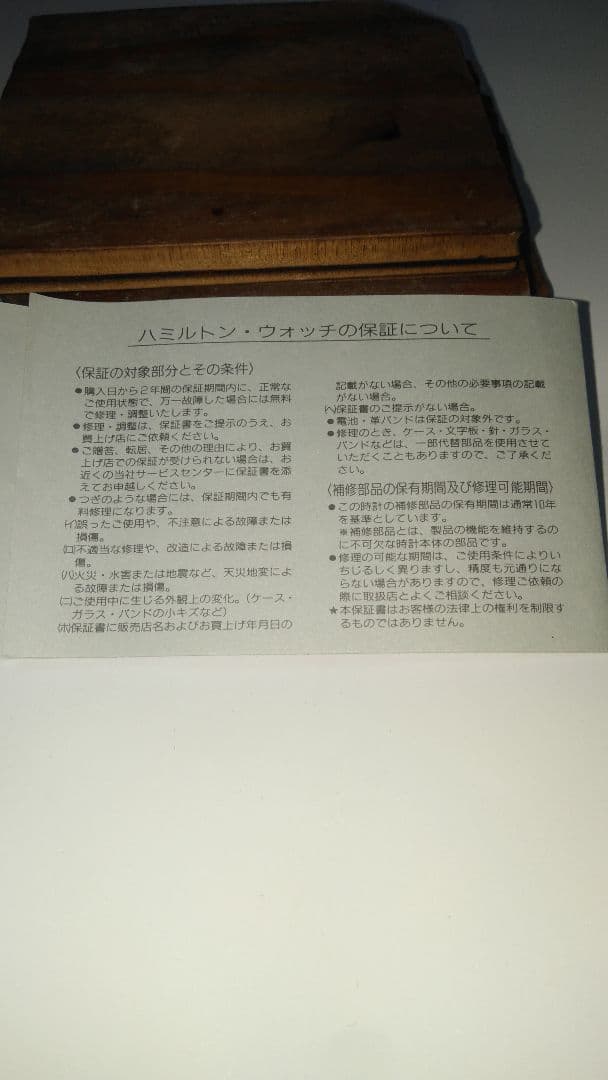 ハミルトン・ウォッチの保証について
〈保証の対象部分とその条件〉
●購入日から2年間の保証期間内に、正常な
ご使用状態で、万一故障した場合には無料
で修理・調整いたします。
●修理・調整は、保証書をご提示のうえ、お
買上げ店にご依頼ください。
●ご贈答、転居、その他の理由により、お買
上げ店での保証が受けられない場合は、お
近くの当社サービスセンターに保証書を添
えてお申越しください。
●つぎのような場合には、保証期間内でも有
料修理になります。
(イ)誤ったご使用や、不注意による故障または
損傷。
(ロ)不適当な修理や、改造による故障または損
傷。
(ハ)火災・水害または地震など、天災地変によ
る故障または損傷。
(ニ)ご使用中に生じる外観上の変化。(ケース・
ガラス・バンドの小キズなど)
(ホ)保証書に販売店名およびお買上げ年月日の
記載がない場合、その他の必要事項の記載
がない場合。
(ヘ)保証書のご提示がない場合。
●電池・革バンドは保証の対象外です。
●修理のとき、ケース・文字板・針・ガラス・
バンドなどは、一部代替部品を使用させて
いただくこともありますので、ご了承くだ
さい。
〈補修部品の保有期間及び修理可能期間〉
●この時計の補修部品の保有期間は通常10年
を基準としています。
※補修部品とは、製品の機能を維持するの
に不可欠な時計本体の部品です。
●修理の可能な期間は、ご使用条件によりい
ちじるしく異りますし、精度も元通りにな
らない場合がありますので、修理ご依頼の
際に取扱店とよくご相談ください。
★本保証書はお客様の法律上の権利を制限す
るものではありません。